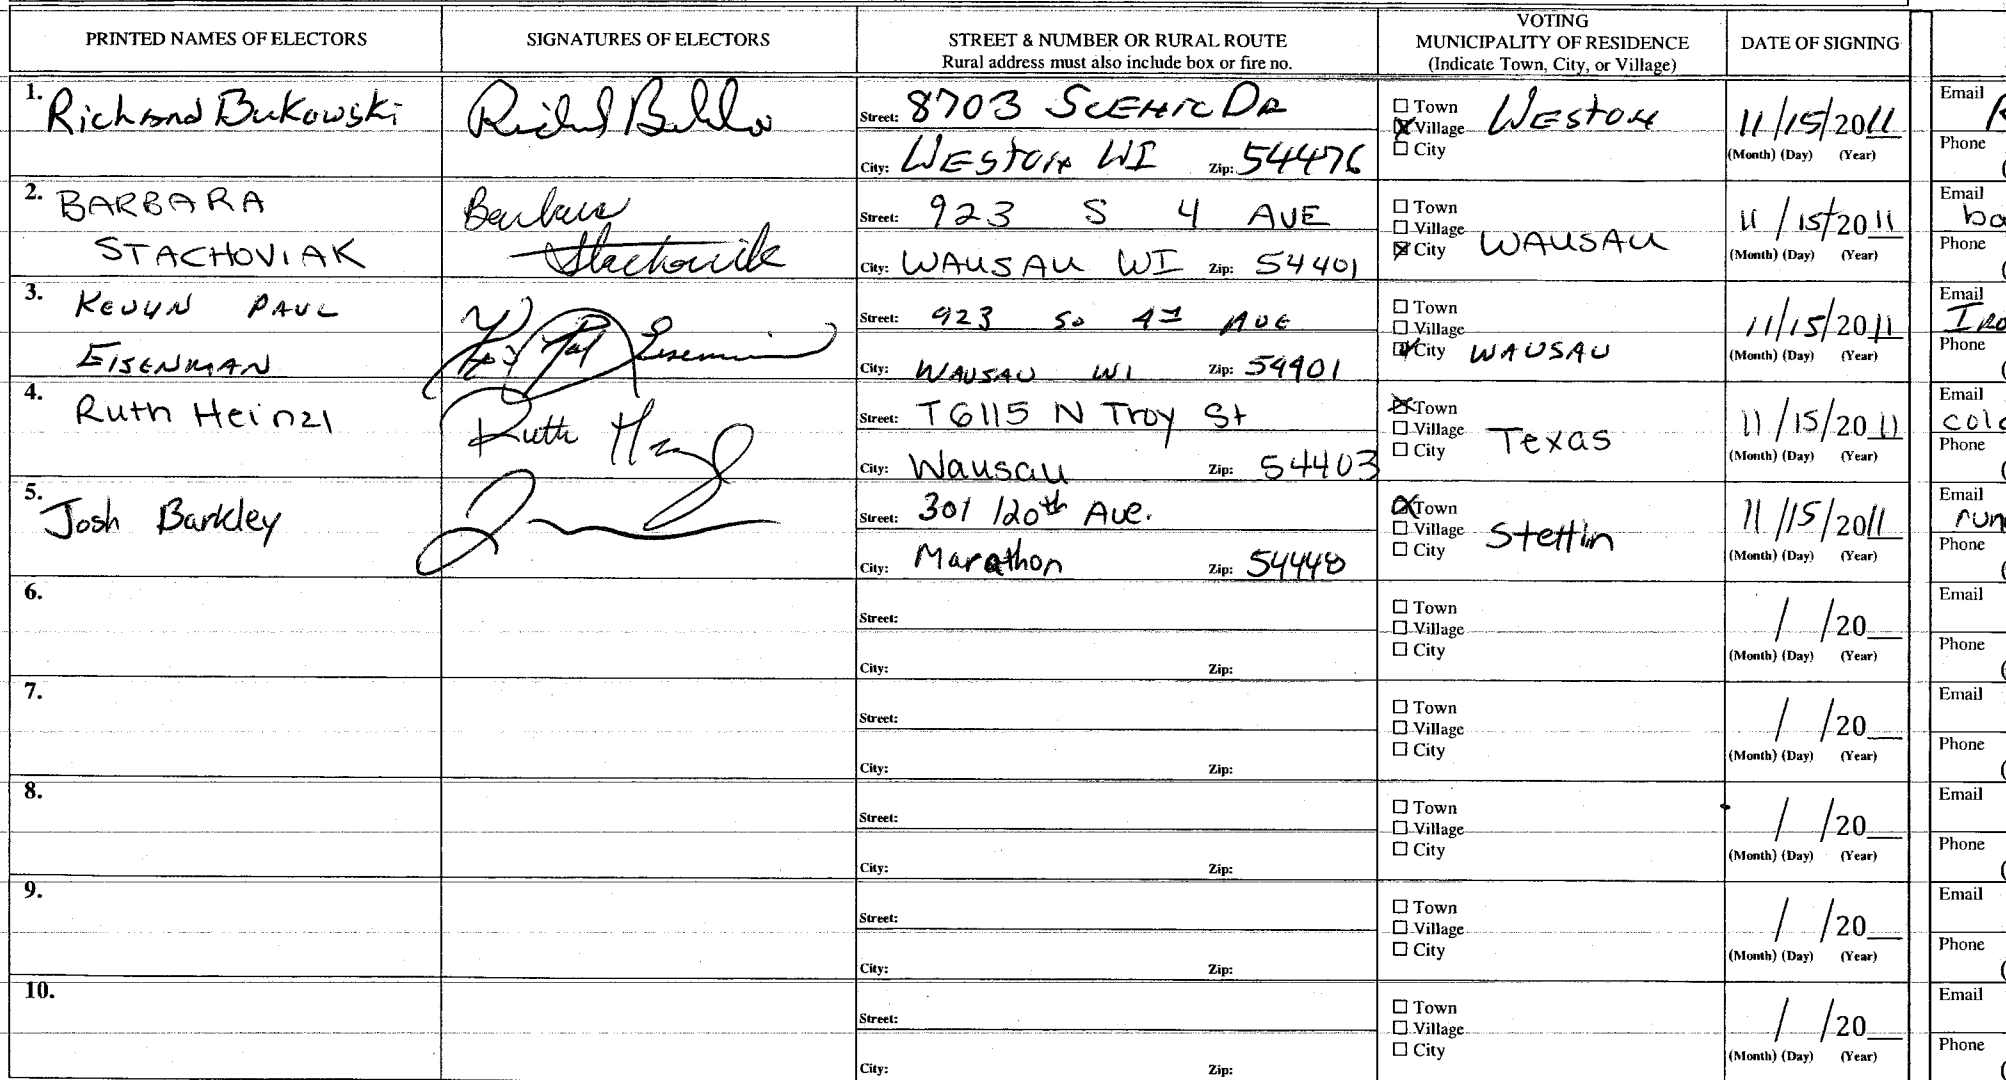 PRINTED NAMES OF ELECTORS SIGNATURES OF ELECTORS STREET & NUMBER OR RURAL ROUTE
Rural address must also include box or fire no. VOTING
MUNICIPALITY OF RESIDENCE
(Indicate Town, City, or Village) DATE OF SIGNING
1. Richard Bukowski Street: 8703 SCENIC DR
City: WESTON WI Zip: 54476
Town
Village WESTON
City
11/15/2011
(Month) (Day) (Year)
Email
Phone
2. BARBARA
STACHOVIAK
Barbara
Stachoviak
Street: 923 S 4 AVE
City: WAUSAU WI Zip: 54401
Town
Village
City WAUSAU
11/15/2011
(Month) (Day) (Year)
Email
ba
Phone
3. KEVYN PAUL
EISENMAN
Street: 923 So 4TH AVE
City: WAUSAU WI Zip: 54401
Town
Village
City WAUSAU
11/15/2011
(Month) (Day) (Year)
Email
Iro
Phone
4. Ruth Heinzl Ruth
Street: T6115 N Troy St
City: Wausau Zip: 54403
Town
Village Texas
City
11/15/2011
(Month) (Day) (Year)
Email
colo
Phone
5. Josh Barkley
Street: 301 120th Ave.
City: Marathon Zip: 54448
Town
Village Stettin
City
11/15/2011
(Month) (Day) (Year)
Email
run
Phone
6.
Street:
City: Zip:
Town
Village
City
/ /20__
(Month) (Day) (Year)
Email
Phone
7.
Street:
City: Zip:
Town
Village
City
/ /20__
(Month) (Day) (Year)
Email
Phone
8.
Street:
City: Zip:
Town
Village
City
/ /20__
(Month) (Day) (Year)
Email
Phone
9.
Street:
City: Zip:
Town
Village
City
/ /20__
(Month) (Day) (Year)
Email
Phone
10.
Street:
City: Zip:
Town
Village
City
/ /20__
(Month) (Day) (Year)
Email
Phone